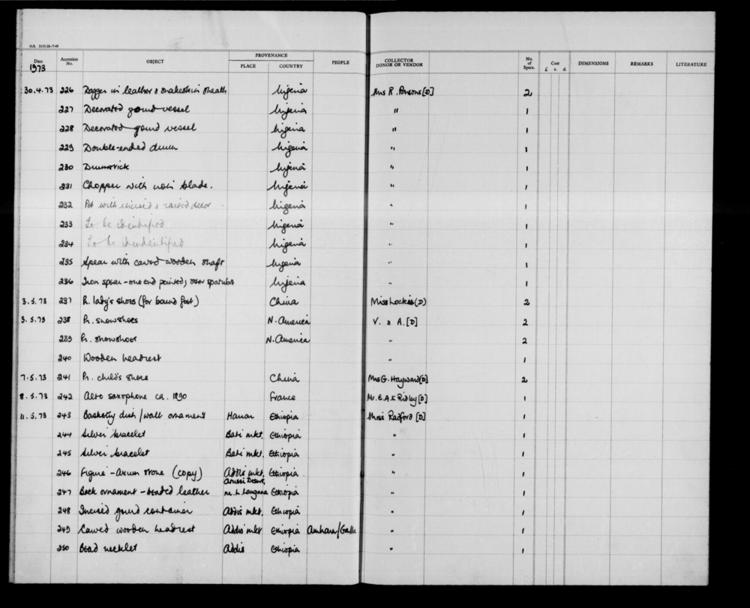 PROVENANCE
DATE Accession No. OBJECT PLACE COUNTRY PEOPLE COLLECTOR DONOR OR VENDOR No. of Specs. Cost £ s. d. DIMENSIONS REMARKS LITERATURE
1973
30.4.73 226 Dagger in leather & snakeskin sheath Nigeria Mrs R. Parsons [D] 2
227 Decorated gourd vessel Nigeria " 1
228 Decorated gourd vessel Nigeria " 1
229 Double-ended drum Nigeria " 1
230 Drumstick Nigeria " 1
231 Chopper with iron blade. Nigeria " 1
232 Pot with incised & raised decor Nigeria " 1
233 To be identified Nigeria " 1
234 To be identified Nigeria " 1
235 Spear with carved wooden shaft Nigeria " 1
236 Iron spear - one end pointed, other spatulate Nigeria " 1
3.5.73 237 Pr. lady's shoes (for bound feet) China Miss Lockie (D) 2
3.5.73 238 Pr. snowshoes N. America V. & A. [D] 2
239 Pr. snowshoes N. America " 2
240 Wooden headrest " 1
7.5.73 241 Pr. child's shoes China Mrs G. Hayward [D] 2
8.5.73 242 Alto saxophone ca. 1890 France Mr. E.A.K Ridley [D] 1
11.5.73 243 Basketry dish/wall ornament Harrar Ethiopia Radford [D] 1
244 Silver bracelet Bati mkt. Ethiopia " 1
245 Silver bracelet Bati mkt. Ethiopia " 1
246 Figure - Axum stone (copy) Addis mkt. Ethiopia " 1
247 Back ornament - beaded leather nr. L. Langana Ethiopia " 1
248 Incised gourd container Addis mkt. Ethiopia " 1
249 Carved wooden headrest Addis mkt Ethiopia Amhara/Galla " 1
250 Bead necklet Addis Ethiopia " 1